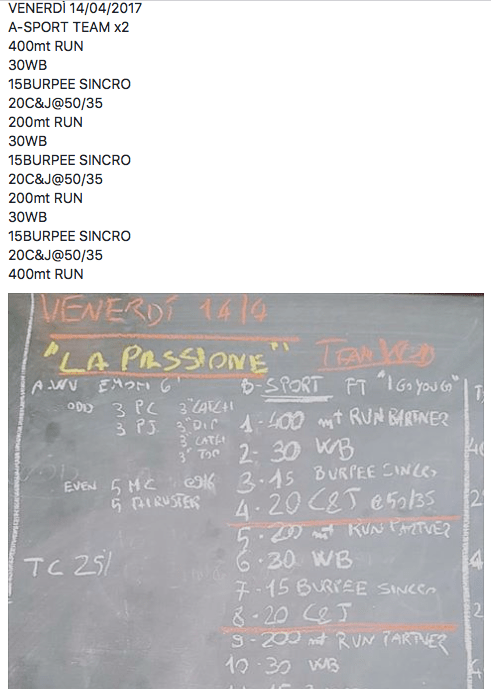 VENERDÌ 14/04/2017
A-SPORT TEAM x2
400mt RUN
30WB
15BURPEE SINCRO
20C&J@50/35
200mt RUN
30WB
15BURPEE SINCRO
20C&J@50/35
200mt RUN
30WB
15BURPEE SINCRO
20C&J@50/35
400mt RUN
VENERDÍ 14/4
"LA PASSIONE" TEAM WOD
A. WU EMOM 6'
ODD 3 PC 3" CATCH
3 PJ 3" DIP
3" CATCH
3" TOP
EVEN 5 MC
5 THRUSTER
TC 25'
B-SPORT FT "I GO YOU GO"
1-400 mt RUN PARTNER
2-30 WB
3-15 BURPEE SINCRO
4-20 C&J @50/35
5-200 mt RUN PARTNER
6-30 WB
7-15 BURPEE SINCRO
8-20 C&J
9-200 mt RUN PARTNER
10-30 WB